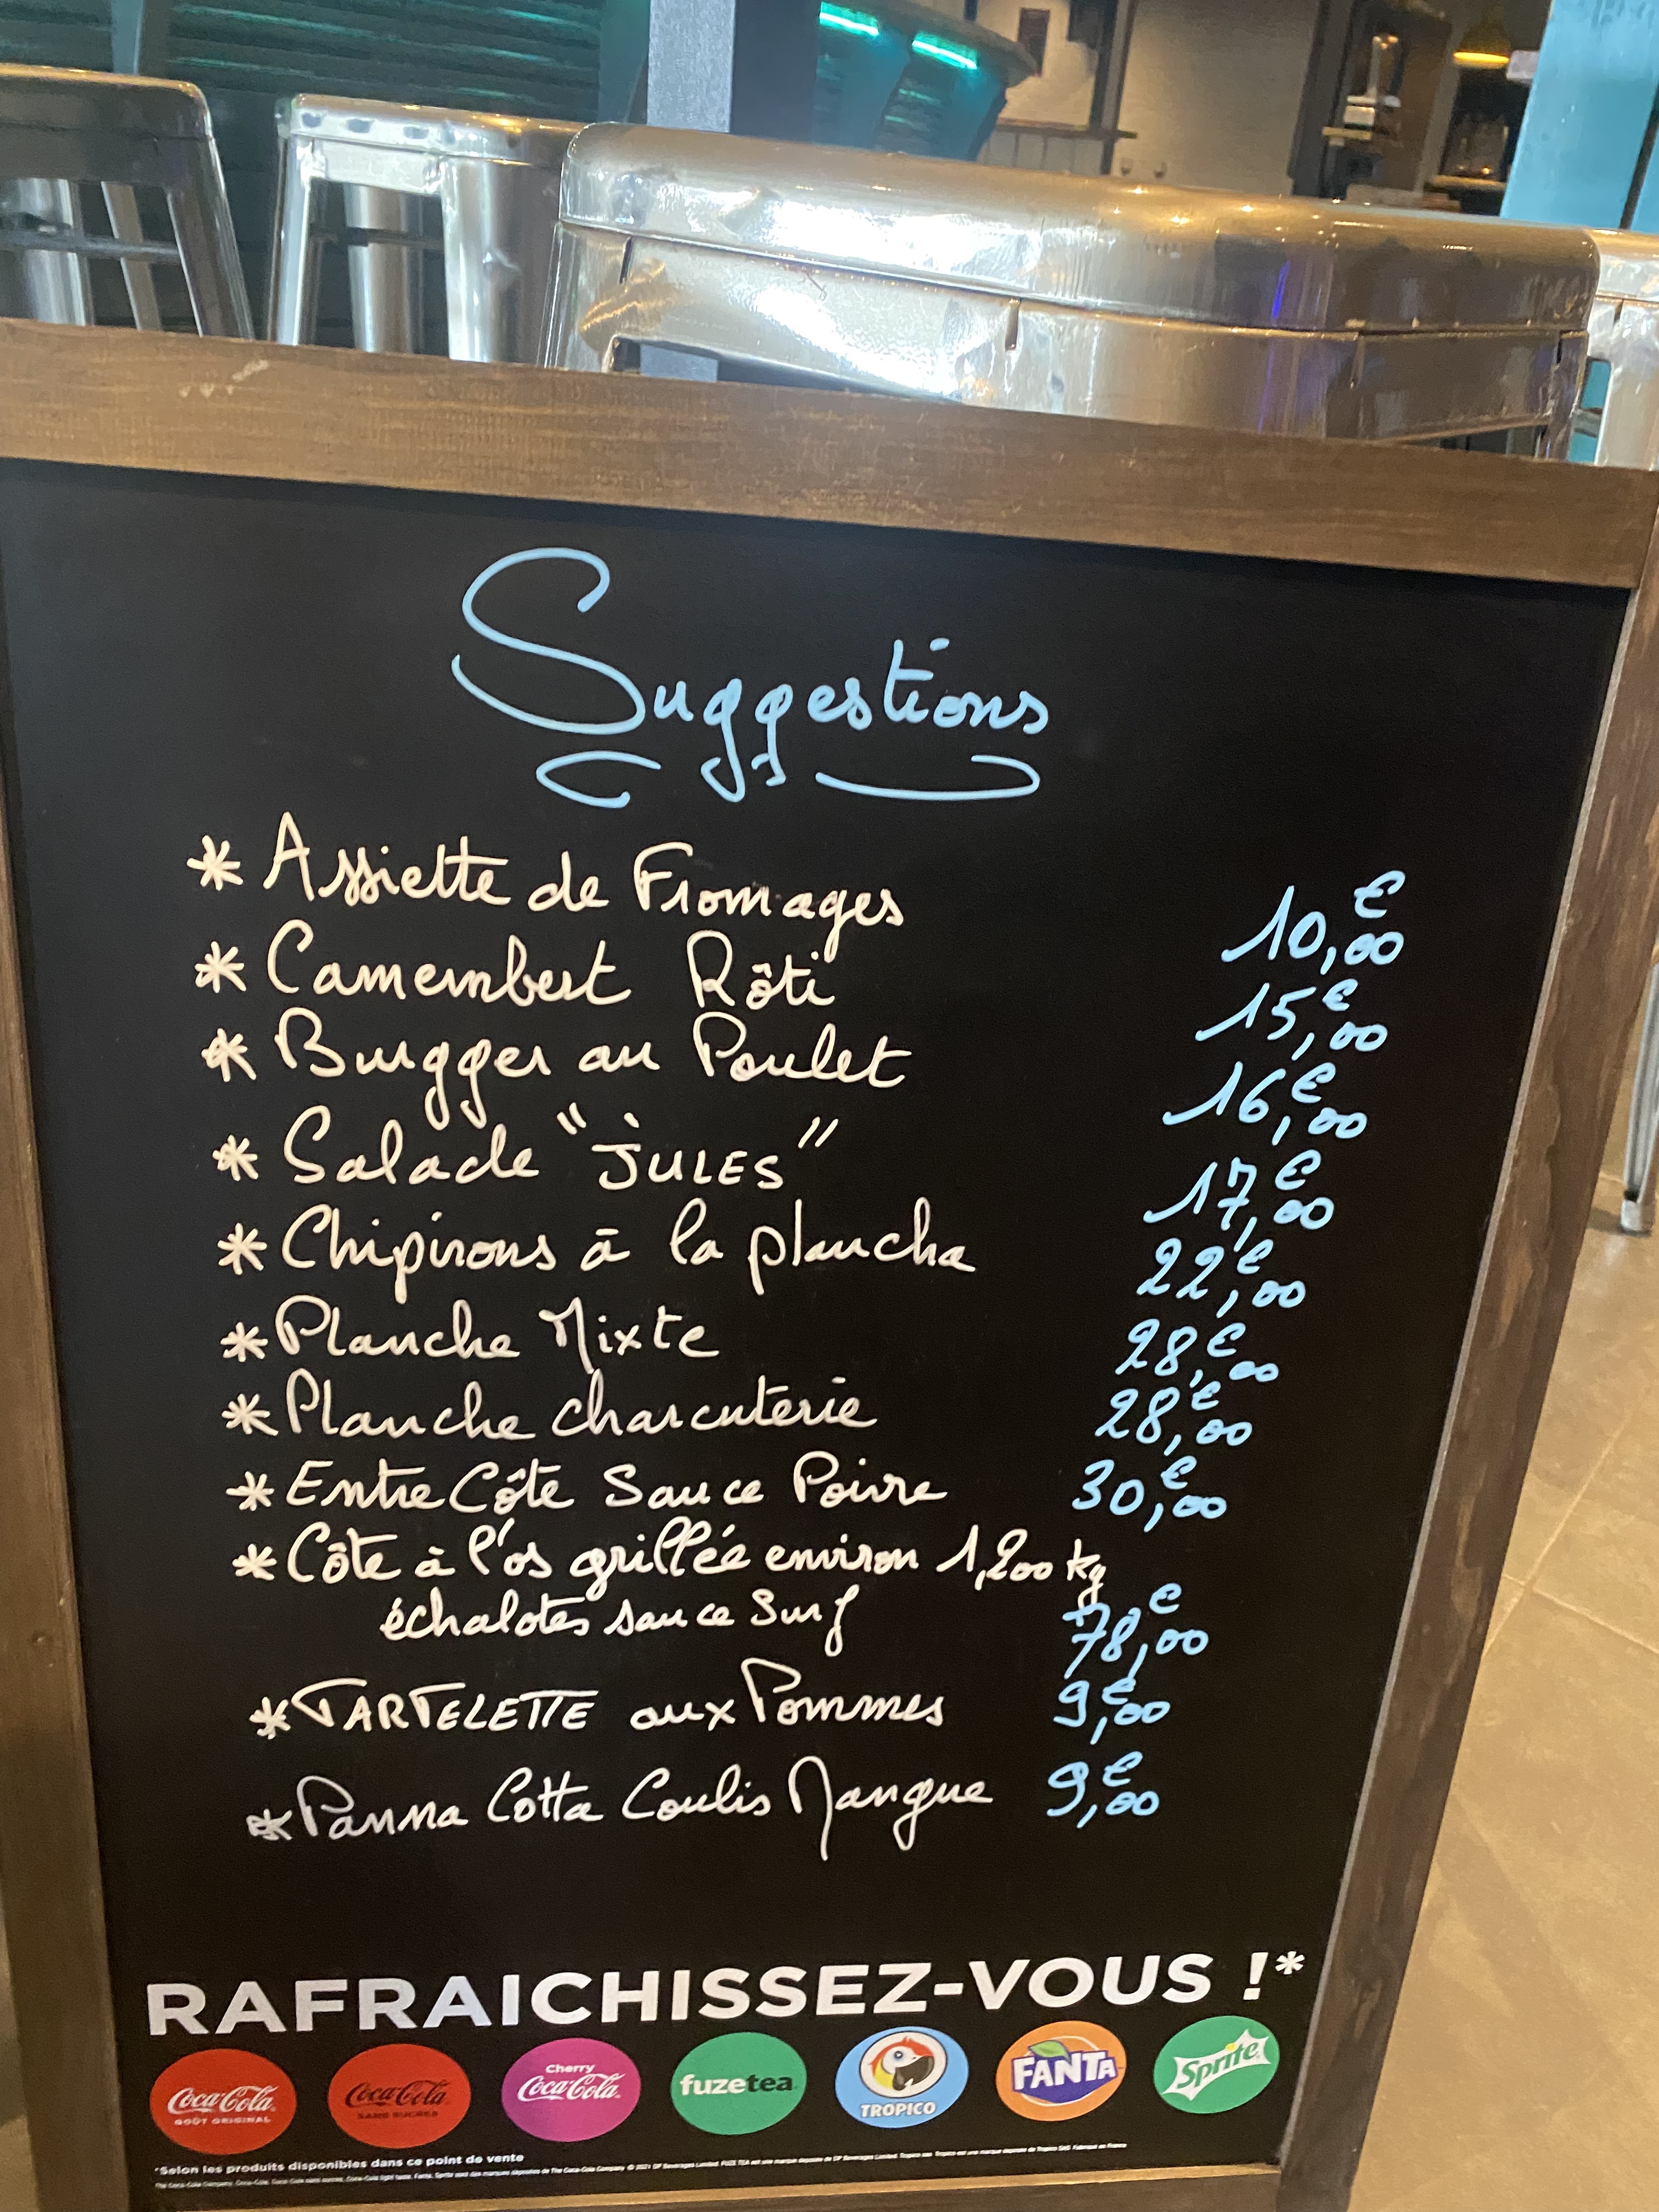 Suggestions
* Assiette de Fromages 10,00 €
* Camembert Rôti 15,00 €
* Burgger au Poulet 16,00 €
* Salade "JULES" 17,00 €
* Chipirons à la plancha 22,00 €
* Planche Mixte 28,00 €
* Planche charcuterie 28,00 €
* Entre Côte Sauce Poivre 30,00 €
* Côte à l'os grillée environ 1,200 kg
échalotes sauce Surf 78,00 €
* TARTELETTE aux Pommes 9,00 €
* Panna Cotta Coulis Mangue 9,00 €
RAFRAICHISSEZ-VOUS !*
Coca-Cola GOÛT ORIGINAL
Coca-Cola SANS SUCRES
Cherry Coca-Cola
fuzetea
TROPICO
FANTA
Sprite
*Selon les produits disponibles dans ce point de vente